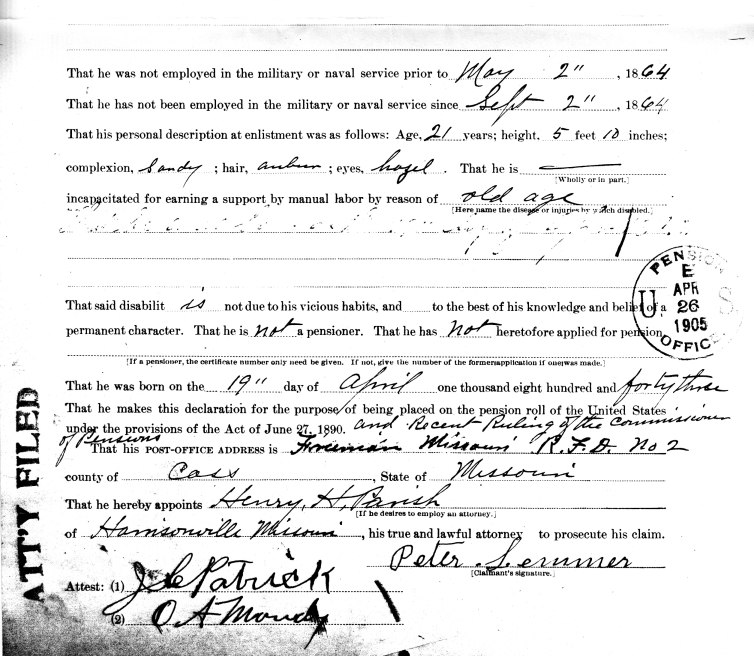 That he was not employed in the military or naval service prior to May 2" , 1864
That he has not been employed in the military or naval service since Sept 2" , 1864
That his personal description at enlistment was as follows: Age, 21 years; height, 5 feet 10 inches;
complexion, Sandy ; hair, auburn ; eyes, hazel . That he is
[Wholly or in part.]
incapacitated for earning a support by manual labor by reason of old age
[Here name the disease or injuries by which disabled.]
PENSION
E
APR
U 26 S
1905
OFFICE
That said disabilit is not due to his vicious habits, and to the best of his knowledge and belief of a
permanent character. That he is not a pensioner. That he has Not heretofore applied for pension
[If a pensioner, the certificate number only need be given. If not, give the number of the former application if one was made.]
That he was born on the 19" day of April one thousand eight hundred and forty three
That he makes this declaration for the purpose of being placed on the pension roll of the United States
under the provisions of the Act of June 27, 1890. and Recent Ruling of the Commissioner
of Pensions
That his POST-OFFICE ADDRESS is Freeman Missouri R.F.D. No 2
county of Cass , State of Missouri
That he hereby appoints Henry, H, Parish
[If he desires to employ an attorney.]
of Harrisonville Missouri , his true and lawful attorney to prosecute his claim.
Peter Lemmer
[Claimant's signature.]
Attest: (1) J C Patrick
(2) O A Mondy
ATT'Y FILED